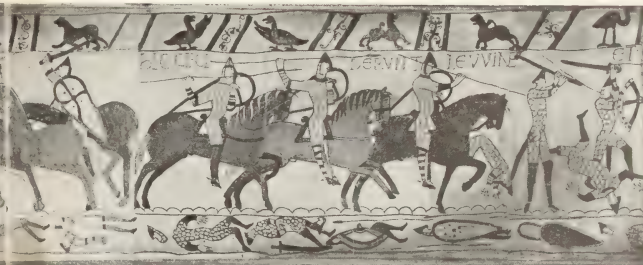 hIC CECI DERVNT LEVVIN